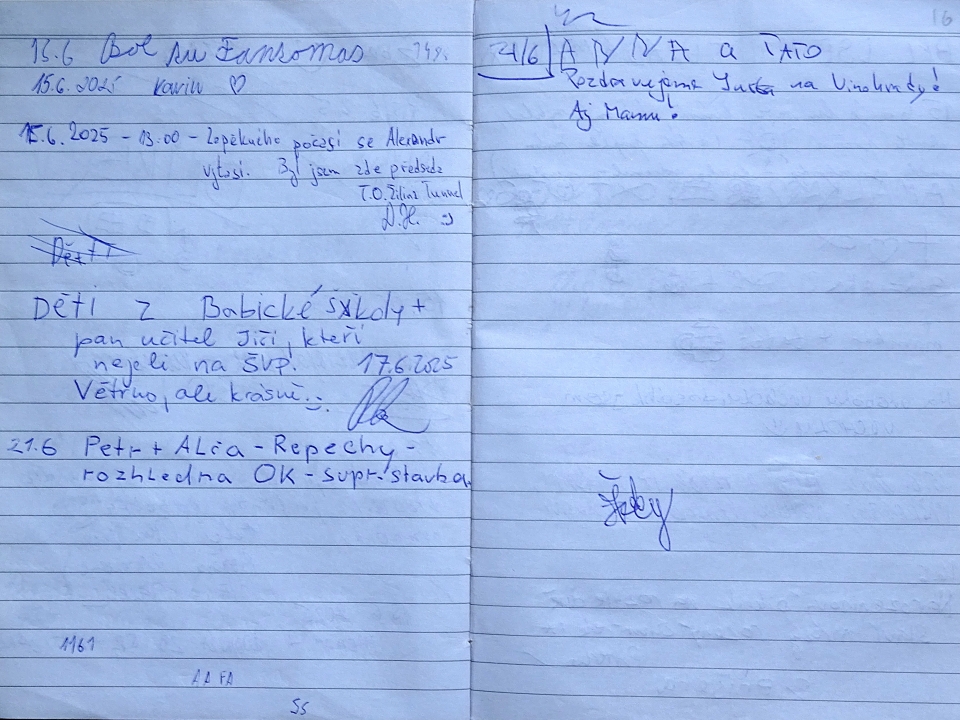 15.6 Bol su Fantomas 74r.
15.6.2025 Karin ♡
15.6.2025 - 13.00 - Zapěkného počasí se Alexandr
vytasi. Byl jsem zde předseda
T.O. Žilina Tunnel
D.H.
Děti z Babické školy +
pan učitel Jiří, kteří
nejeli na ŠVP. 17.6.2025
Větrno, ale krásně
21.6 Petr + ALča - Repechy -
rozhledna OK - supr. stavba
1161
AA FA
SS
16
21/6 ANNA a TATO
Pozdravujeme na Vinohrady!
Aj Mamu!